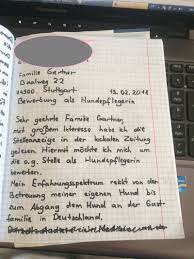 Familie Gartner
Baalweg 22
Stuttgart 13.02.2018
Bewerbung als Hundepflegerin
Sehr geehrte Familie Gartner,
mit großem Interesse habe ich die
Stellenanzeige in der lokalen Zeitung
gelesen. Hiermit möchte ich mich, um
die o.g. Stelle als Hundepflegerin
bewerben.
Mein Erfahrungsspektrum reikt von der
Betreuung meiner eigenen Hund bis
zum Abgang dem Hund an der Gast-
familie in Deutschland.